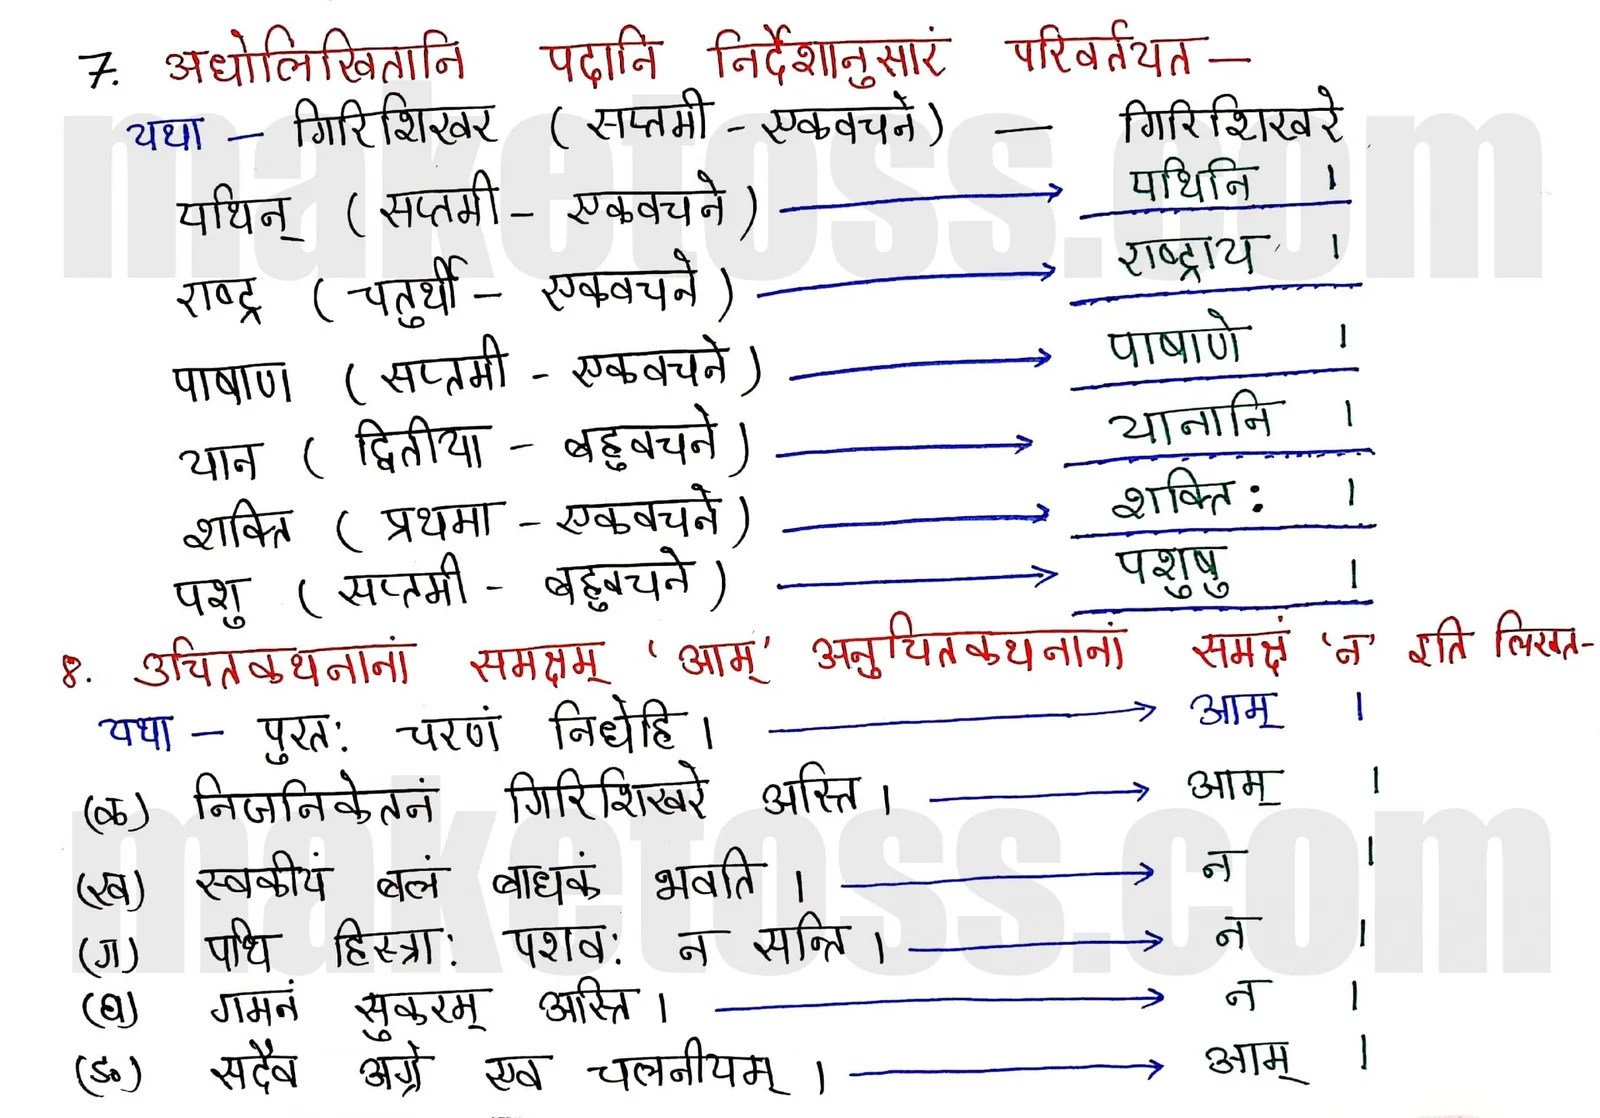 7. अधोलिखितानि पदानि निर्देशानुसारं परिवर्तयत —
यथा — गिरिशिखर ( सप्तमी - एकवचने ) — गिरिशिखरे
पथिन् ( सप्तमी - एकवचने ) → पथिनि ।
राष्ट्र ( चतुर्थी - एकवचने ) → राष्ट्राय ।
पाषाण ( सप्तमी - एकवचने ) → पाषाणे ।
यान ( द्वितीया - बहुवचने ) → यानानि ।
शक्ति ( प्रथमा - एकवचने ) → शक्ति: ।
पशु ( सप्तमी - बहुवचने ) → पशुषु ।
8. उचितकथनानां समक्षम् 'आम्' अनुचितकथनानां समक्षं 'न' इति लिखत-
यथा — पुरत: चरणं निधेहि । → आम् ।
(क) निजनिकेतनं गिरिशिखरे अस्ति । → आम् ।
(ख) स्वकीयं बलं बाधकं भवति । → न ।
(ग) पथि हिंस्त्रा: पशव: न सन्ति । → न ।
(घ) गमनं सुकरम् अस्ति । → न ।
(ङ) सदैव अग्रे एव चलनीयम् । → आम् ।
maketoss.com
maketoss.com